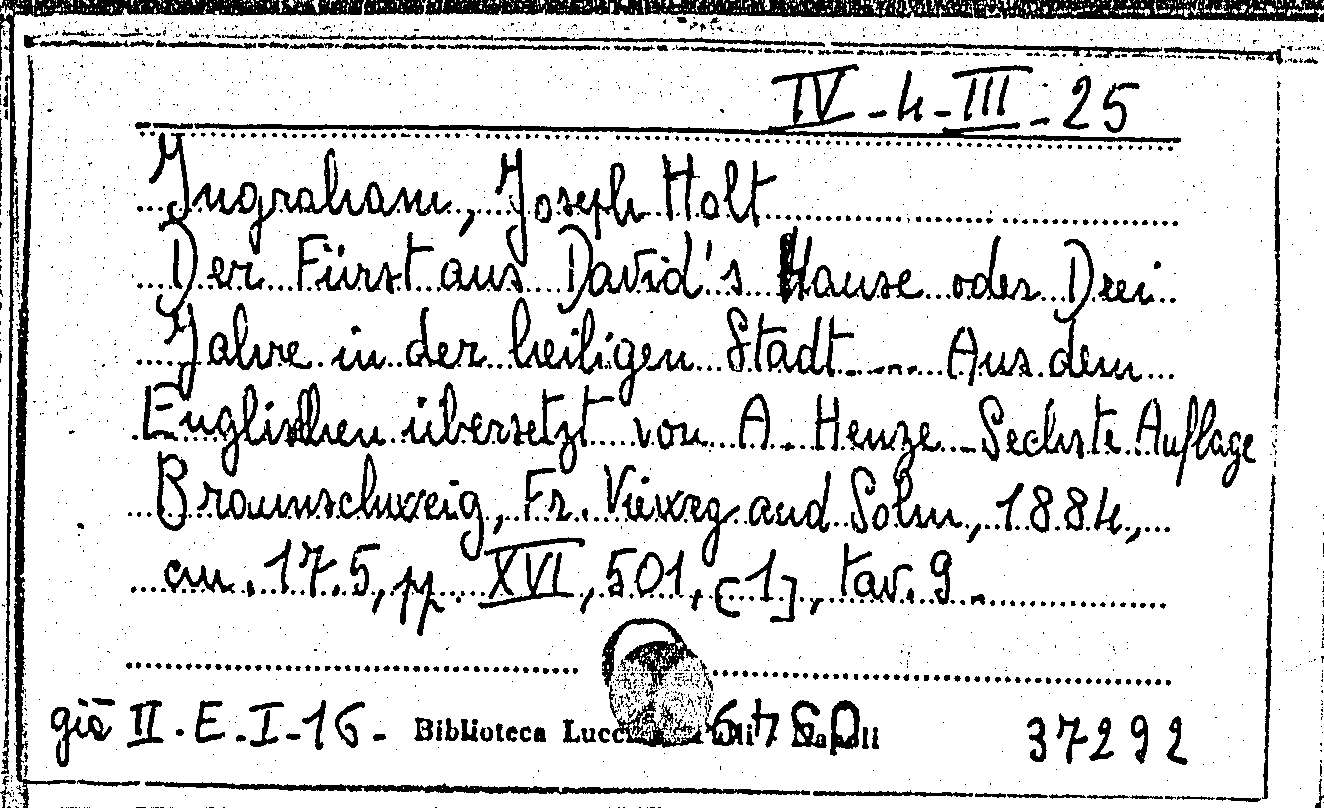 IV-4-III-25
Ingraham, Joseph Holt
Der Fürst aus David's Hause oder Drei
Jahre in der heiligen Stadt.... Aus dem
Englischen übersetzt von A. Henze. Sechste Auflage
Braunschweig, Fr. Vieweg and Sohn, 1884,
cm. 17.5, pp. XVI, 501, [1], tav. 9.
già II.E.I-16- Biblioteca 37292